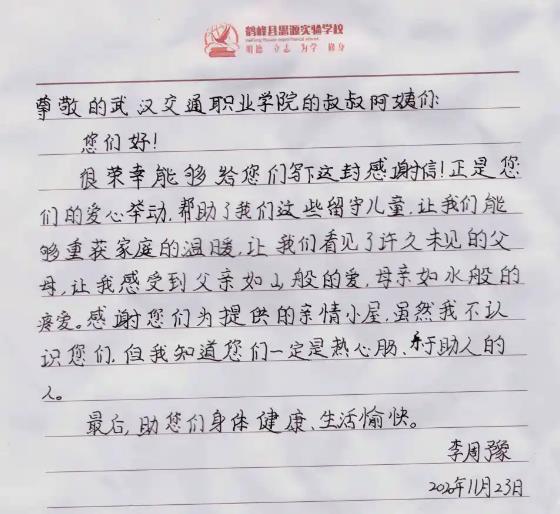 鹤峰县思源实验学校
明德 立志 为学 修身
尊敬的武汉交通职业学院的叔叔阿姨们:
您们好!
很荣幸能够给您们写下这封感谢信!正是您
们的爱心举动,帮助了我们这些留守儿童,让我们能
够重获家庭的温暖,让我们看见了许久未见的父
母,让我感受到父亲如山般的爱,母亲如水般的
疼爱。感谢您们为提供的亲情小屋,虽然我不认
识您们,但我知道您们一定是热心肠、乐于助人的
人。
最后,助您们身体健康、生活愉快。
李周豫
2020年11月23日